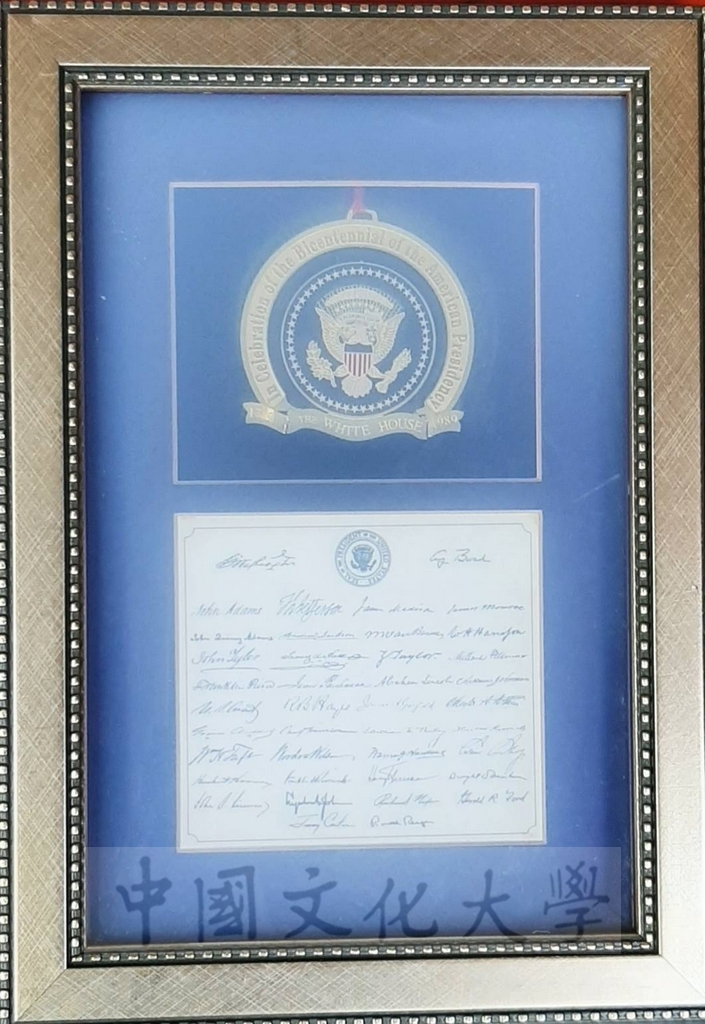 In Celebration of the Bicentennial of the American Presidency
THE WHITE HOUSE 1989
Geo Bush
John Adams Th Jefferson James Madison James Monroe
John Quincy Adams Andrew Jackson M Van Buren W H Harrison
John Tyler Z Taylor Millard Fillmore
Franklin Pierce James Buchanan Abraham Lincoln Andrew Johnson
U. S. Grant R B Hayes James A Garfield Chester A Arthur
Wm H Taft Woodrow Wilson Warren G Harding Calvin Coolidge
Herbert Hoover Harry Truman Dwight Eisenhower
John F Kennedy Lyndon B Johnson Richard Nixon Gerald R. Ford
Jimmy Carter Ronald Reagan
中國文化大學